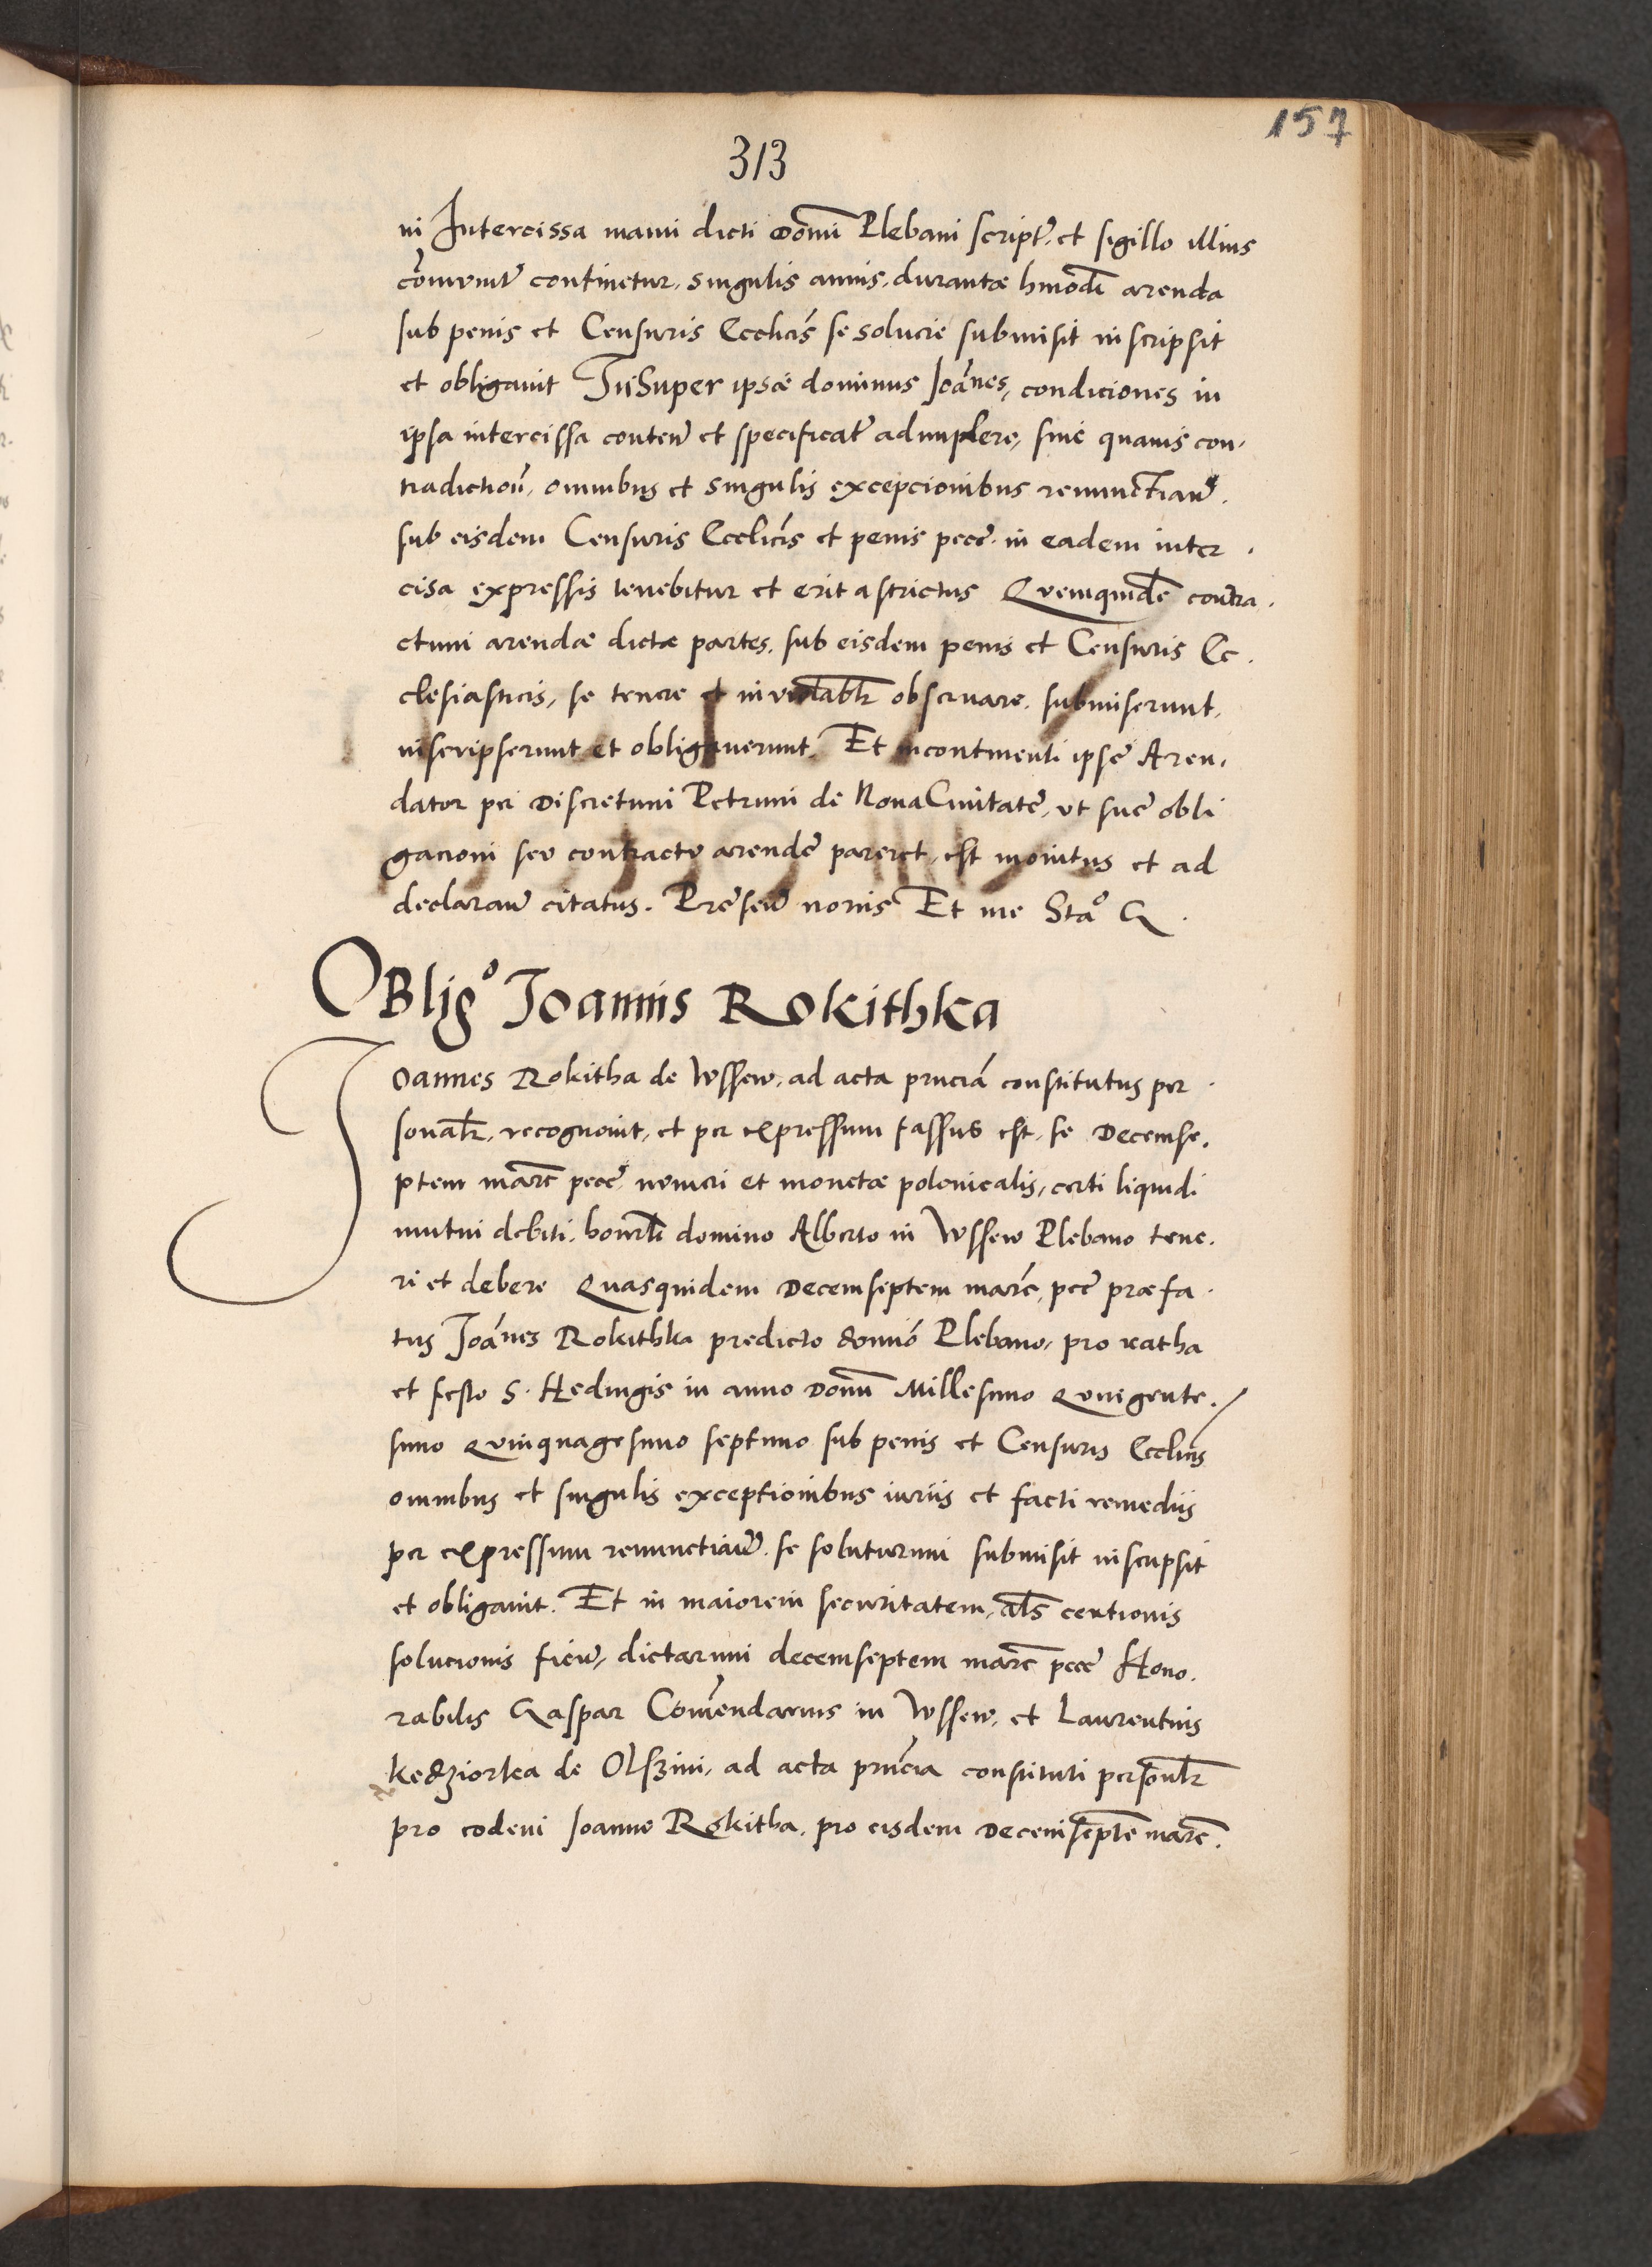 157
313
in Intercissa manu dicti domi Plebani script et sigillo illius
comunit continetur, singulis annis, durantæ hmodi arenda
sub penis et Censuris Ecclicis se solucre submisit inscripsit
et obligauit InSuper ipsæ dominus Joānes, condiciones in
ipsa intercissa conten et specificat adimplere, sine quauis con,
tradictiori, omnibus et singulis excepcionibus renunctian.
sub eisdem Censuris Ecclicis et penis pecc in eadem inter
cisa expressis tenebitur et erit astrictus Quemquidē contra.
ctum arendæ dictæ partes, sub eisdem penis et Censuris Ec.
clesiasticis, se tenere et inviolablr obseruare, submiserunt,
inscripserunt et obligauerunt. Et incontinenti ipse Aren,
dator per Discretum Petrum de NouaCiuitate, vt sue obli
gacioni seu contractu arende pareret, est monitus et ad
declaran citatus. Presen nomis Et me Sta° G.
OBlig° Joannis Rokithka
Joannes Rokitha de Wssew, ad acta pnciā constitutus per
sonalr, recognouit, et per expressum fassus est, se Decemse,
ptem marc pecc numeri et monetæ polonicalis, certi liquidi
mutui debiti, honrli domino Alberto in Wssew Plebano tene.
ri et debere Quasquidem Decemseptem marc, pec præfa.
tus Joānes Rokithka predicto domio Plebano, pro ratha
et festo S. Heduigis in anno Domi Millesimo Quingente.
simo Quinquagesimo septimo sub penis et Censuris Ecclicis
omnibus et singulis exceptionibus iuriis et facti remediis
per expressum renunctian. se soluturum submisit inscripsit
et obligauit. Et in maiorem securitatem, als certionis
solucionis fien, dictarum decemseptem marc pecc Hono.
rabilis Gaspar Comendarius in Wssew, et Laurentius
kedziorka de Olszini, ad acta pncia constituti personlr
pro eodem Joanne Rokitha, pro eisdem Decemseptē marc.